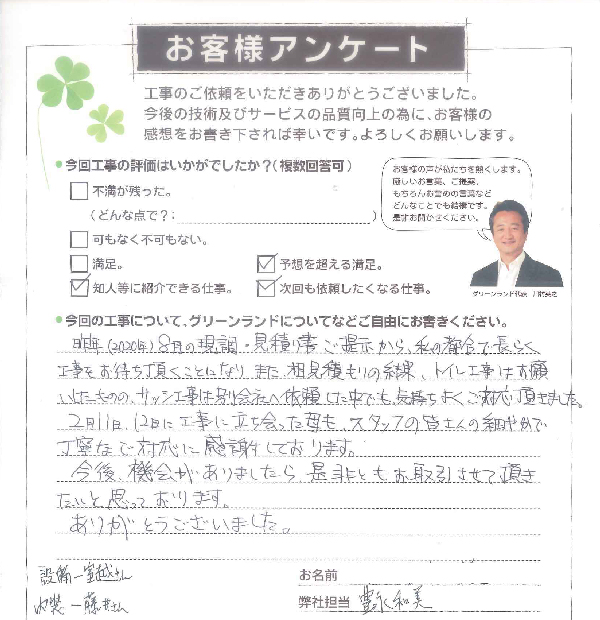 お客様アンケート
工事のご依頼をいただきありがとうございました。
今後の技術及びサービスの品質向上の為に、お客様の
感想をお書き下されば幸いです。よろしくお願いします。
今回工事の評価はいかがでしたか？（複数回答可）
不満が残った。
（どんな点で？：　）
可もなく不可もない。
満足。
予想を超える満足。
知人等に紹介できる仕事。
次回も依頼したくなる仕事。
お客様の声が私たちを熱くします。
厳しいお言葉、ご提案、
もちろんお誉めの言葉など
どんなことでも結構です。
是非お聞かせください。
グリーンランド代表
今回の工事について、グリーンランドについてなどご自由にお書きください。
昨年(2020年)8月の現調・見積り書ご提示から、私の都合で長らく
工事をお待ち頂くことになり、また、相見積もりの結果、トイレ工事はお願
いしたものの、サッシ工事は別会社へ依頼した中でも、気持ちよくご対応頂きました。
2月11日、12日に工事に立ち会った母も、スタッフの皆さんの細やかで
丁寧なご対応に感謝しております。
今後、機会がありましたら、是非ともお取引させて頂き
たいと思っております。
ありがとうございました。
設備－室越さん
内装－藤井さん
お名前
弊社担当 豊永和美